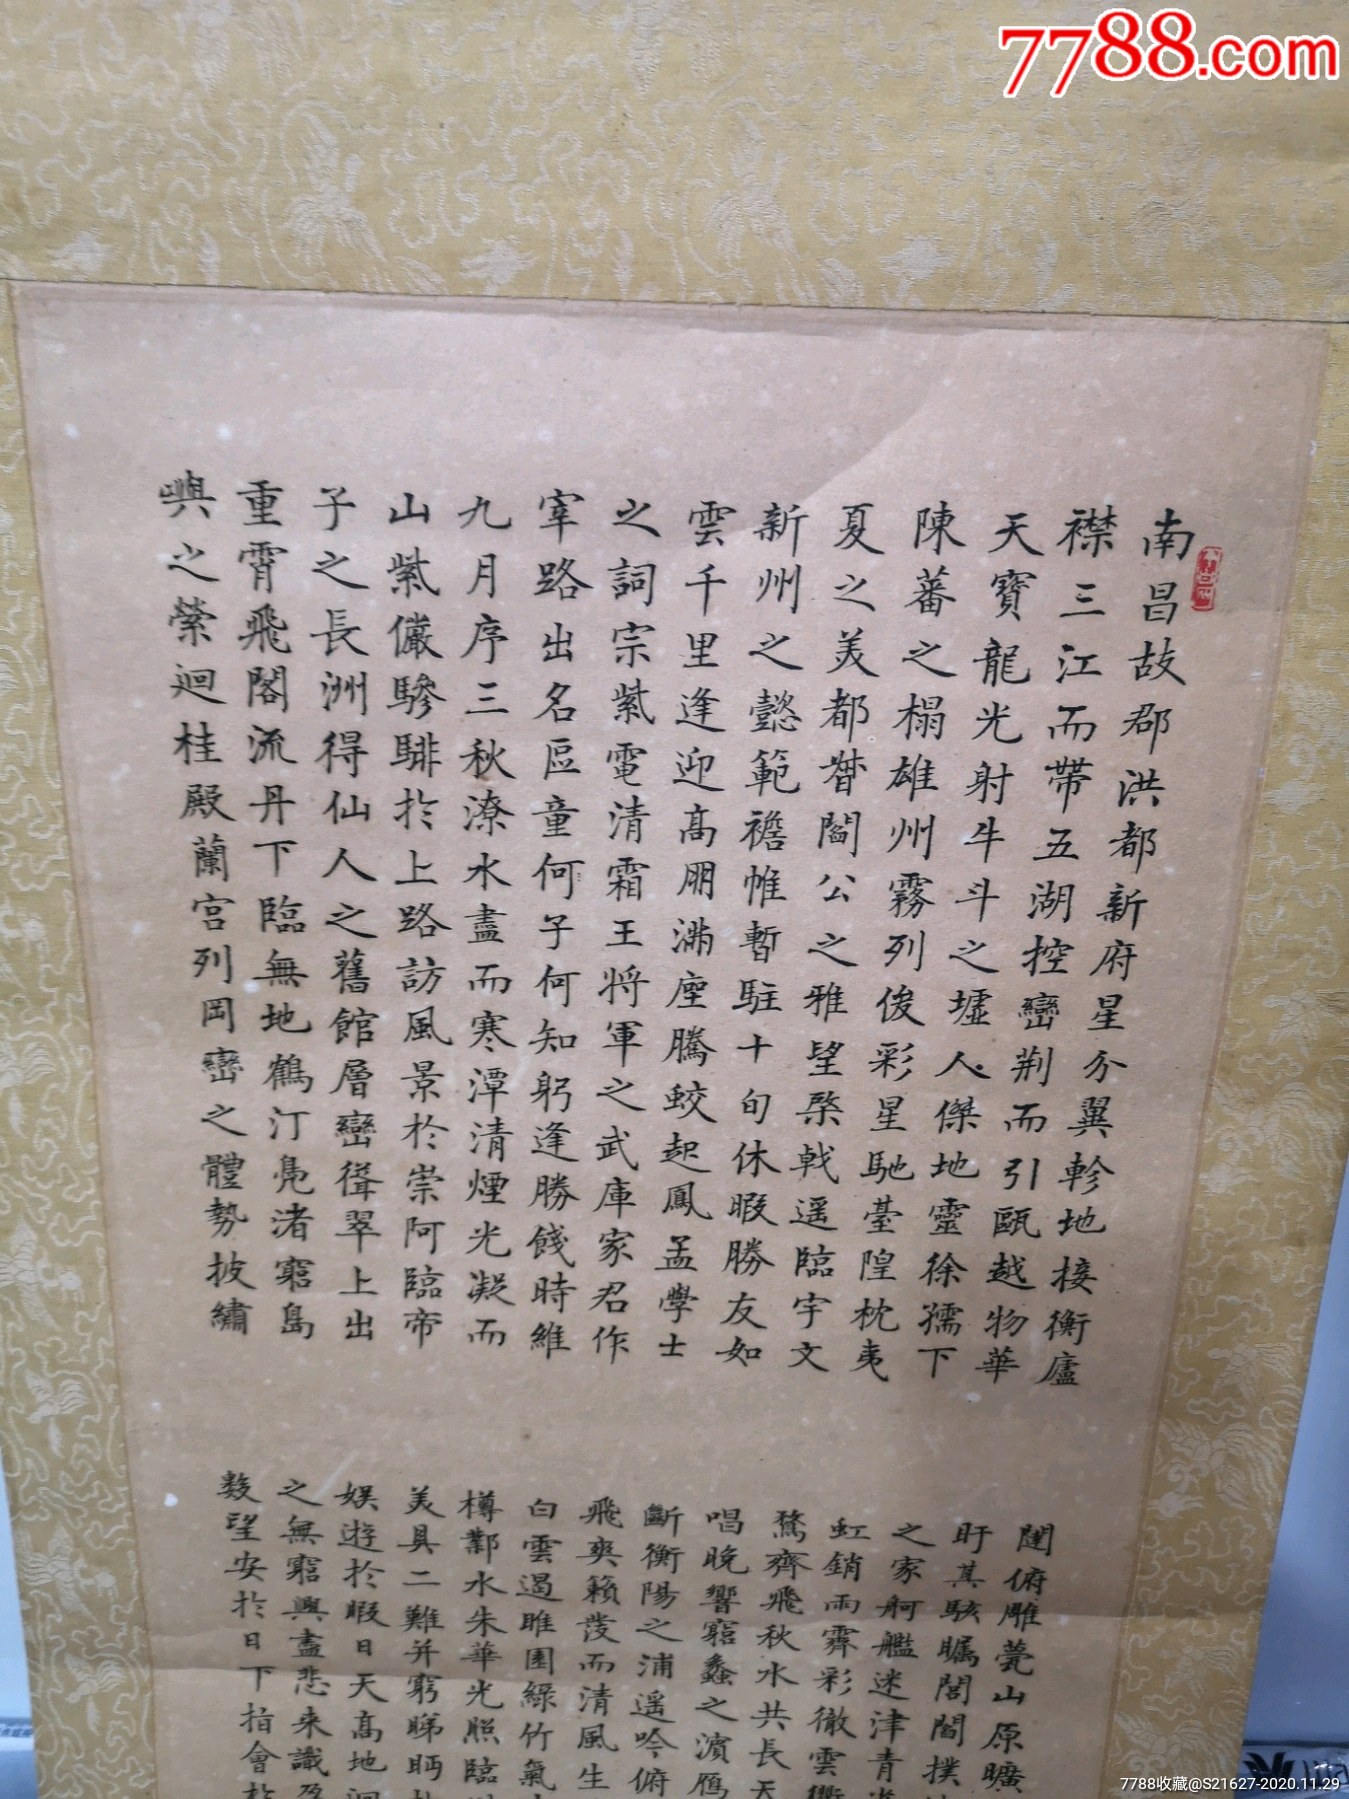 7788.com
南昌故郡洪都新府星分翼軫地接衡廬
襟三江而帶五湖控巒荆而引甌越物華
天寶龍光射牛斗之墟人傑地靈徐孺下
陳蕃之榻雄州霧列俊彩星馳臺隍枕夷
夏之美都督閻公之雅望棨戟遥臨宇文
新州之懿範襜帷暫駐十旬休暇勝友如
雲千里逢迎高朋滿座騰蛟起鳳孟學士
之詞宗紫電清霜王将軍之武庫家君作
宰路出名區童何子何知躬逢勝餞時維
九月序三秋潦水盡而寒潭清煙光凝而
山紫儼驂騑於上路訪風景於崇阿臨帝
子之長洲得仙人之舊館層巒聳翠上出
重霄飛閣流丹下臨無地鶴汀鳧渚窮島
嶼之縈迴桂殿蘭宮列岡巒之體勢披繡
闥俯雕甍山原曠
盱其駭矚閭閻撲
之家舸艦迷津青
虹銷雨霽彩徹雲
鶩齊飛秋水共長天
唱晚響窮蠡之濱鴈
斷衡陽之浦遥吟俯
飛爽籟發而清風生
白雲遏睢園綠竹氣
樽鄴水朱華光照臨
美具二難并窮睇眄
娱遊於暇日天高地迥
之無窮興盡悲来識盈
數望安於日下指會於
7788收藏@S21627-2020.11.29